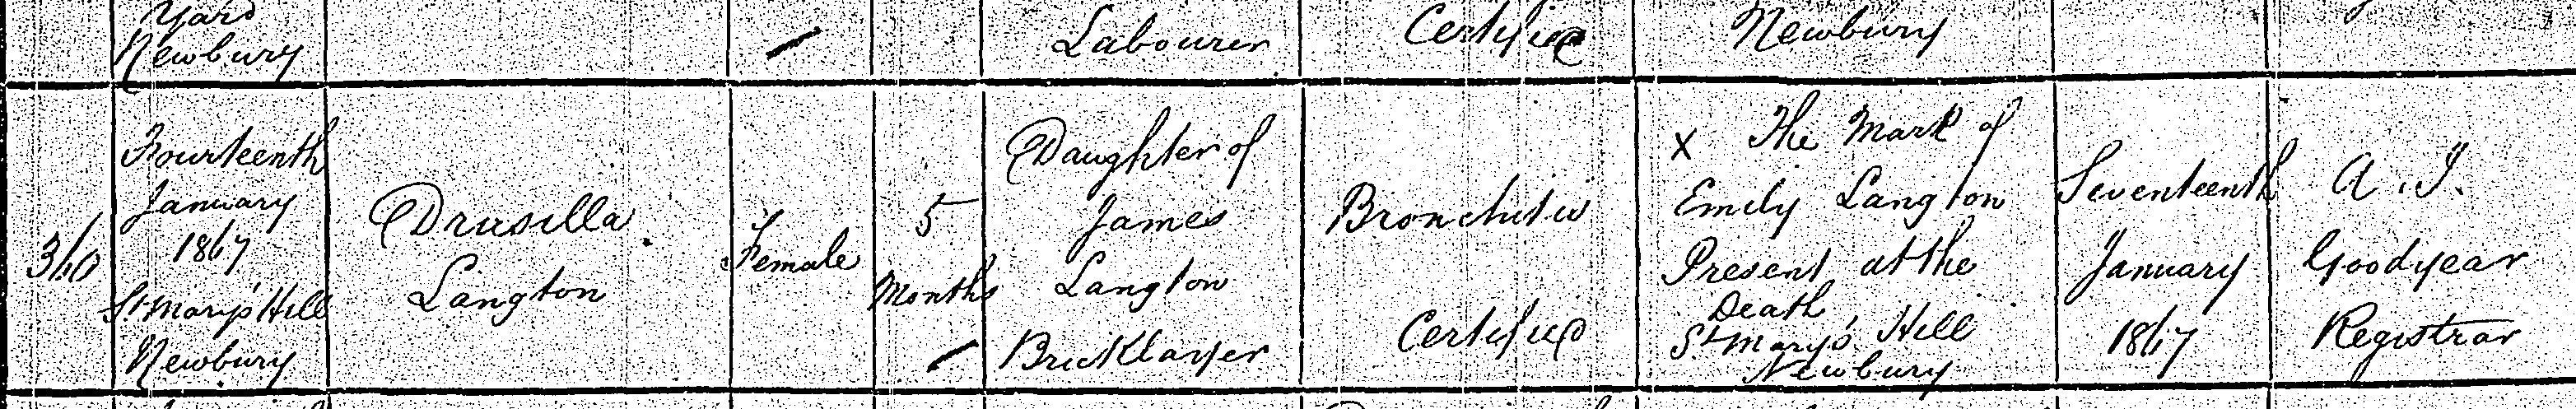 Yard
Newbury
Labourer
Certified
Newbury
360
Fourteenth
January
1867
St Mary's Hill
Newbury
Drusilla
Langton
Female
5
Months
Daughter of
James
Langton
Bricklayer
Bronchitis
Certified
X The Mark of
Emily Langton
Present at the
Death
St Mary's Hill
Newbury
Seventeenth
January
1867
A. I.
Goodyear
Registrar